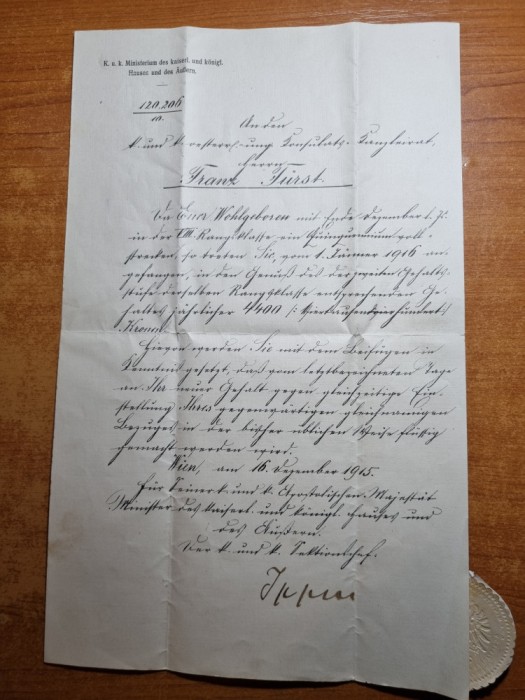 K. u. k. Ministerium des kaiserl. und königl.
Hauses und des Äußern.
120.206
10.
An den
k. und k. oesterr.-ung. Konsulats-Kanzleirat,
Herrn
Franz Fürst.
Da Euer Wohlgeboren mit Ende Dezember l. Js.
in der VIII. Rangsklasse ein Quinquennium voll-
strecken, so treten Sie, vom 1. Jänner 1916 an-
gefangen, in den Genuß des der zweiten Gehalts-
stufe derselben Rangsklasse entsprechenden Ge-
haltes jährlicher 4400 /: Viertausendvierhundert :/
Kronen.
Hievon werden Sie mit dem Beifügen in
Kenntnis gesetzt, daß vom letztbezeichneten Tage
an Ihr neuer Gehalt gegen gleichzeitige Ein-
stellung Ihres gegenwärtigen gleichnamigen
Bezuges in der bisher üblichen Weise flüssig
gemacht werden wird.
Wien, am 16. Dezember 1915.
Für Seiner k. und k. Apostolischen Majestät
Minister des kaiserl. und königl. Hauses und
des Äußern.
Der k. und k. Sektionschef.